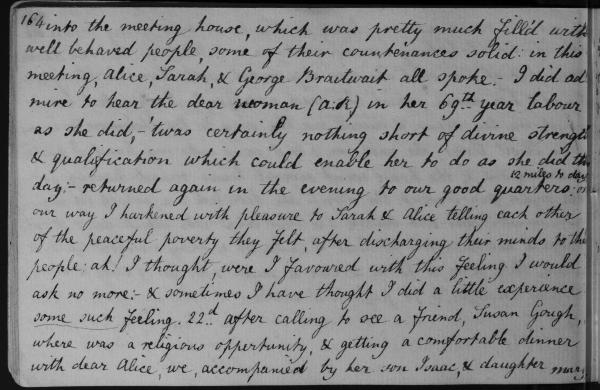 164 into the meeting house, which was pretty much fill'd with
well behaved people, some of their countenances solid: in this
meeting, Alice, Sarah, & George Braitwait all spoke.- I did ad
mire to hear the dear woman (a:R) in her 69th year labour
as she did,-'twas certainly nothing short of divine strength
& qualification which could enable her to do as she did this
12 miles to day
day:- returned again in the evening to our good quarters: on
our way I harkened with pleasure to Sarah & Alice telling each other
of the peaceful poverty they felt, after discharging their minds to the
people; ah! I thought, were I favoured with this feeling I would
ask no more:- & sometimes I have thought I did a little experience
some such feeling. 22d after calling to see a friend, Susan Gough,
where was a religious oppertunity, & getting a comfortable dinner
with dear Alice, we, accompanied by her son Isaac, & daughter Mary